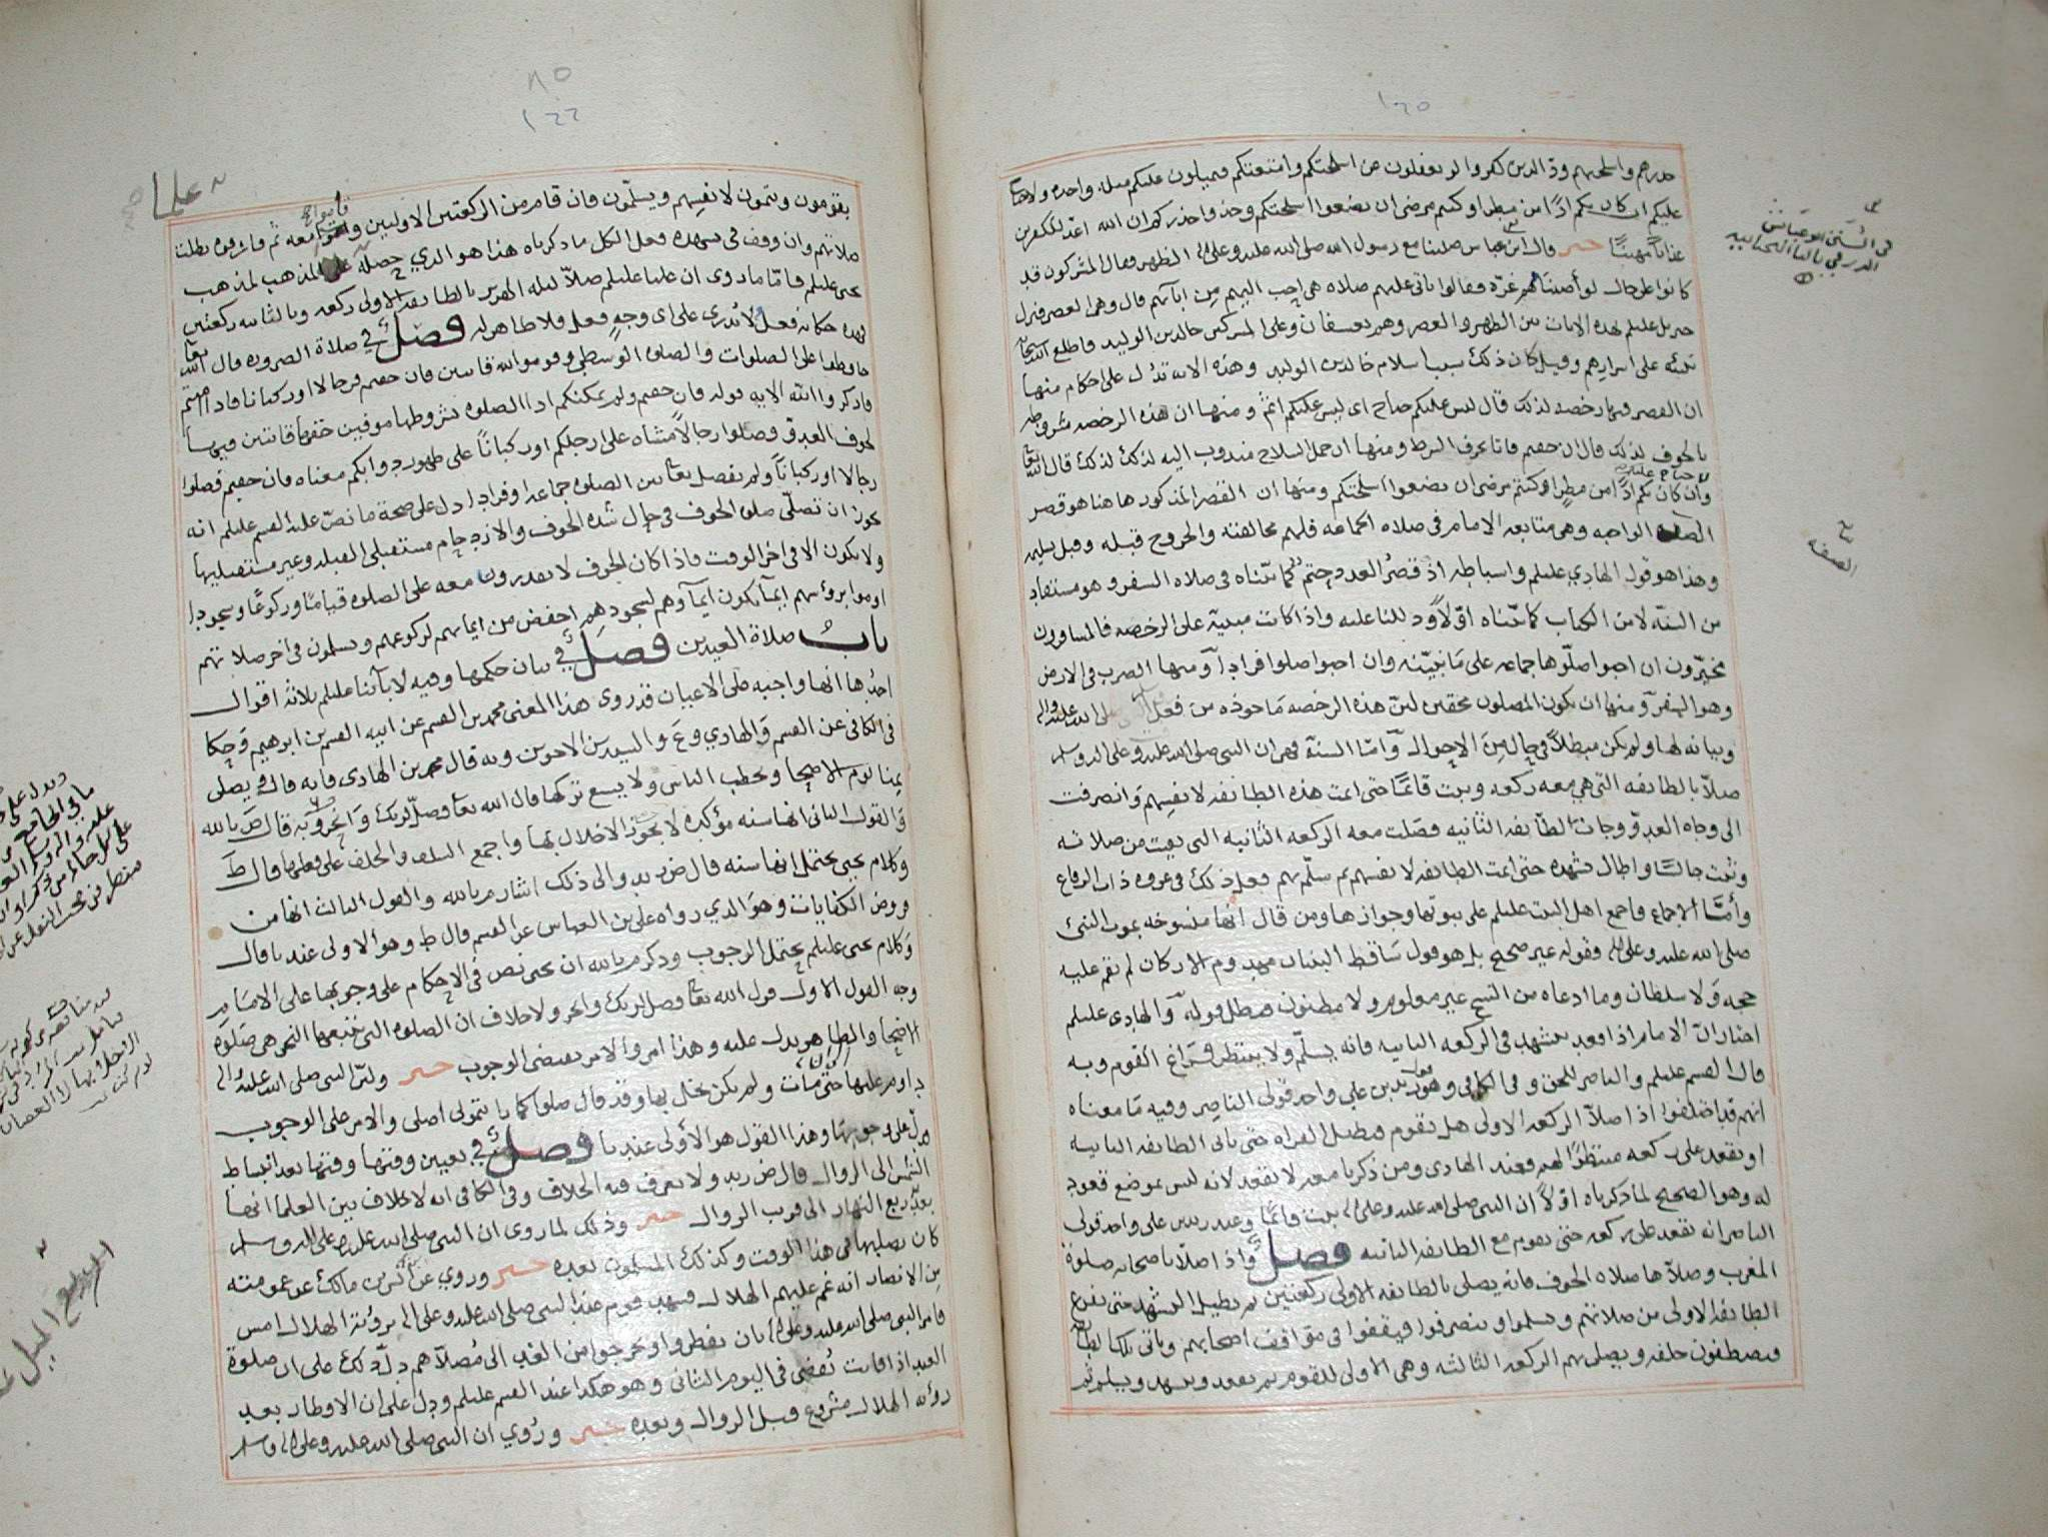 ١٢٥
حذرهم واسلحتهم ود الذين كفروا لو تغفلون عن اسلحتكم وامتعتكم فيميلون عليكم ميلة واحدة ولا جناح
عليكم ان كان بكم اذًا من مطر او كنتم مرضى ان تضعوا اسلحتكم وخذوا حذركم ان الله اعد للكفرين
عذابًا مهينًا خبر قال ابن عباس صلينا مع رسول الله صلى الله عليه وعلى اله الظهر فقال المشركون قد
كانوا على حال لو أصبنا لهم غرّة فقالوا تاتى عليهم صلاة هي احب اليهم من ابآئهم قال وهى العصر فنزل
جبريل عليلم بهذه الايات بين الظهر والعصر وهم بعسفان وعلى المشركين خالد بن الوليد فاطلع الله سبحانه
نبيّه على اسرارهم وقيل كان ذلك سبب اسلام خالد بن الوليد وهذه الاية تدل على احكام منها
ان القصر فيها رخصة لذلك قال ليس عليكم جناح اى ليس عليكم اثم ومنها ان هذه الرخصة مشروطه
بالخوف لذلك قال ان خفتم فاتا بحرف الشرط ومنها ان حمل السلاح مندوب اليه لذلك قال الله تعا
لا جناح عليكم
وان كان بكم اذًا من مطر او كنتم مرضى ان تضعوا اسلحتكم ومنها ان القصر المذكور هاهنا هو قصر
الصفه الواجبه وهى متابعه الامام فى صلاة الجماعه فلهم مخالفته والخروج قبله وقبل تسليمه
وهذا هو قول الهادي عليلم واسباطه اذ قصر العدد حتم كما بيّناه فى صلاة السفر وهو مستفاد
من السنّه لا من الكتاب كما بيّناه اوّلًا ودللنا عليه واذا كانت مبنيّة على الرخصه فالمسافرون
مخيّرون ان احبوا صلّوها جماعه على ما نبيّنه وان احبوا صلوا فرادا ومنها الضرب فى الارض
وهو السفر ومنها ان يكون المصلون محقين لانّ هذه الرخصه ماخوذه من فعل النبى صلى الله عليه واله
وبيانه لها ولم يكن مبطلًا في حال من الاحوال وامّا السنة فهى ان النبى صلى الله عليه وعلى اله وسلم
صلّا بالطائفه التى هي معه ركعه وثبت قائمًا حتى اتمت هذه الطائفه لانفسهم وانصرفت
الى وجاه العدوّ وجات الطّائفه الثانيه فصلت معه الركعه الثانيه التى بقيت من صلاته
وثبت جالسًا واطال تشهده حتى اتمت الطائفه لانفسهم ثم سلّم بهم فعل ذلك فى غزوه ذات الرقاع
وأمّا الاجماع فاجمع اهل البيت عليلم على ثبوتها وجوازها ومن قال انها منسوخه بموت النبي
صلى الله عليه وعلى اله فقوله غير صحيح بل هو قول ساقط البنيان مهدوم الاركان لم تقم عليه
حجه ولا سلطان وما ادعاه من النسخ غير معلوم ولا مظنون فبطل قوله والهادى عليلم
اختار انّ الامام اذا قعد يتشهد فى الركعه الثانيه فانه يسلّم ولا ينتظر فراغ القوم وبه
قال القسم عليلم والناصر للحق وفى الكافى وهو قول زيد بن علي واحد قولى الناصر وفيه ما معناه
انهم قد اختلفوا اذا صلّا الركعه الاولى هل يقوم فيطيل القراه حتى ياتى الطائفه الثانيه
او يقعد على ركعه منتظرًا لهم فعند الهادى ومن ذكرنا معه لا يقعد لانه ليس بموضع قعود
له وهو الصحيح لما ذكرناه اوّلًا ان النبى صلى الله عليه وعلى اله ثبت قائمًا وعند زيد بن على واحد قولى
الناصر انه يقعد على ركعه حتى يقوم مع الطائفه الثانيه فصل واذا صلّا باصحابه صلوة
المغرب وصلّاها صلاه الخوف فانه يصلى بالطائفه الاولى ركعتين ثم يطيل التشهد حتى تفرغ
الطائفه الاولى من صلاتهم ويسلموا وينصرفوا فيقفوا فى مواقف اصحابهم وياتى تلك الطائفه
فيصطفون خلفه ويصلى بهم الركعه الثالثه وهى الاولى للقوم ثم يقعد ويتشهد ويسلم ثم
الصفه
٨٥
١٢٦
يقومون ويتمون لانفسهم ويسلّمون فان قام من الركعتين الاوليين وقاموا معه ثم فارقوه بطلت
صلاتهم وان وقف فى تشهده فعل الكل ما ذكرناه هذا هو الذي حصله على المذهب لمذهب
يحيى عليلم فامّا ما روى ان عليا عليلم صلّا ليله الهرير بالطائفه الاولى ركعه وبالثانيه ركعتين
فهذه حكايه فعل لا يُدرى على اى وجهٍ فعل فلا ظاهر له فصل في صلاة الضروره قال الله تعا
حافظوا على الصلوات والصلوه الوسطى وقوموا لله قانتين فان خفتم فرجالا او ركبانا فاذا امنتم
فاذكروا الله الايه قوله فان خفتم ولم يمكنكم ادا الصلوه بشروطها موفين حقوقها قانتين فيها
لخوف العدوّ فصلوا رجالًا مشاه على ارجلكم او ركبانًا على ظهور دوابكم معناه فان خفتم فصلوا
رجالا او ركبانًا ولم يفصل تعا بين الصلوه جماعه او فرادا دل على صحة ما نصّ عليه القسم عليلم انه
يجوز ان تصلّى صلوه الخوف فى حال شدة الخوف والازدحام مستقبلى القبله وغير مستقبليها
ولا يكون الا فى اخر الوقت فاذا كان الخوف لا يقدرون معه على الصلوه قيامًا وركوعًا وسجودا
اوموا برؤسهم ايمآ يكون ايمآوهم لسجودهم اخفض من ايمائهم لركوعهم ويسلمون فى اخر صلاتهم
باب صلاة العيدين فصل في بيان حكمها وفيه لابآئنا عليلم ثلاثة اقوال
احدها انها واجبه على الاعيان قد روى هذا المعنى محمد بن القسم عن ابيه القسم بن ابرهيم وحكا
فى الكافى عن القسم والهادي وع والسيدين الاخوين وبه قال محمد بن الهادى فانه قال فى يصلى
بمنا يوم الاضحا ويخطب الناس ولا يسع تركها قال الله تعا وصلّ لربك وانحر وبه قال ض بالله
والقول الثانى انها سنه مؤكده لا يجوز الاخلال بها واجمع السلف والخلف على فعلها قال ط
وكلام يحيى يحتمل انها سنه قال ض زيد والى ذلك اشار م بالله والقول الثالث انها من
فروض الكفايات وهو الذي رواه على بن العباس عن القسم قال ط وهو الاولى عند يا قال
وكلام يحيى عليلم يحتمل الوجوب وذكر م بالله ان يحيى نص فى الاحكام على وجوبها على الامام
وجه القول الاول قول الله تعا فصل لربك وانحر ولا خلاف ان الصلوه التى يتبعها النحر هى صلوة
الاضحا والظاهر يدل عليه وهذا امر والامر يقتضى الوجوب خبر ولان النبى صلى الله عليه واله
داوم عليها حتى مات ولم يكن يخل بها وقد قال صلوا كما رايتمونى اصلى والامر على الوجوب
فدل على وجوبها وهذا القول هو الأولى عند يا فصل في تعيين وقتها وقتها بعد انبساط
الشمس الى الزوال قال ض زيد ولا يعرف فيه الخلاف وفى الكافى انه لا خلاف بين العلما انها
بعد ربع النهار الى قرب الزوال خبر وذلك لما روى ان النبى صلى الله عليه وعلى اله وسلم
كان يصليها فى هذا الوقت وكذلك المسلمون بعده خبر وروي عن انس بن مالك عن عمومته
من الانصار انه غم عليهم الهلال فشهد قوم عند النبى صلى الله عليه وعلى اله برؤية الهلال امس
فامر النبى صلى الله عليه وعلى اله بان يفطروا ويخرجوا من الغد الى مُصلّاهم دلّ ذلك على ان صلوة
العيد اذا فاتت تُقضى فى اليوم الثانى وهو هكذا عند القسم عليلم ودل على ان الافطار بعد
رؤيه الهلال مشروع قبل الزوال وبعده خبر ورُوي ان النبى صلى الله عليه وعلى اله وسلم